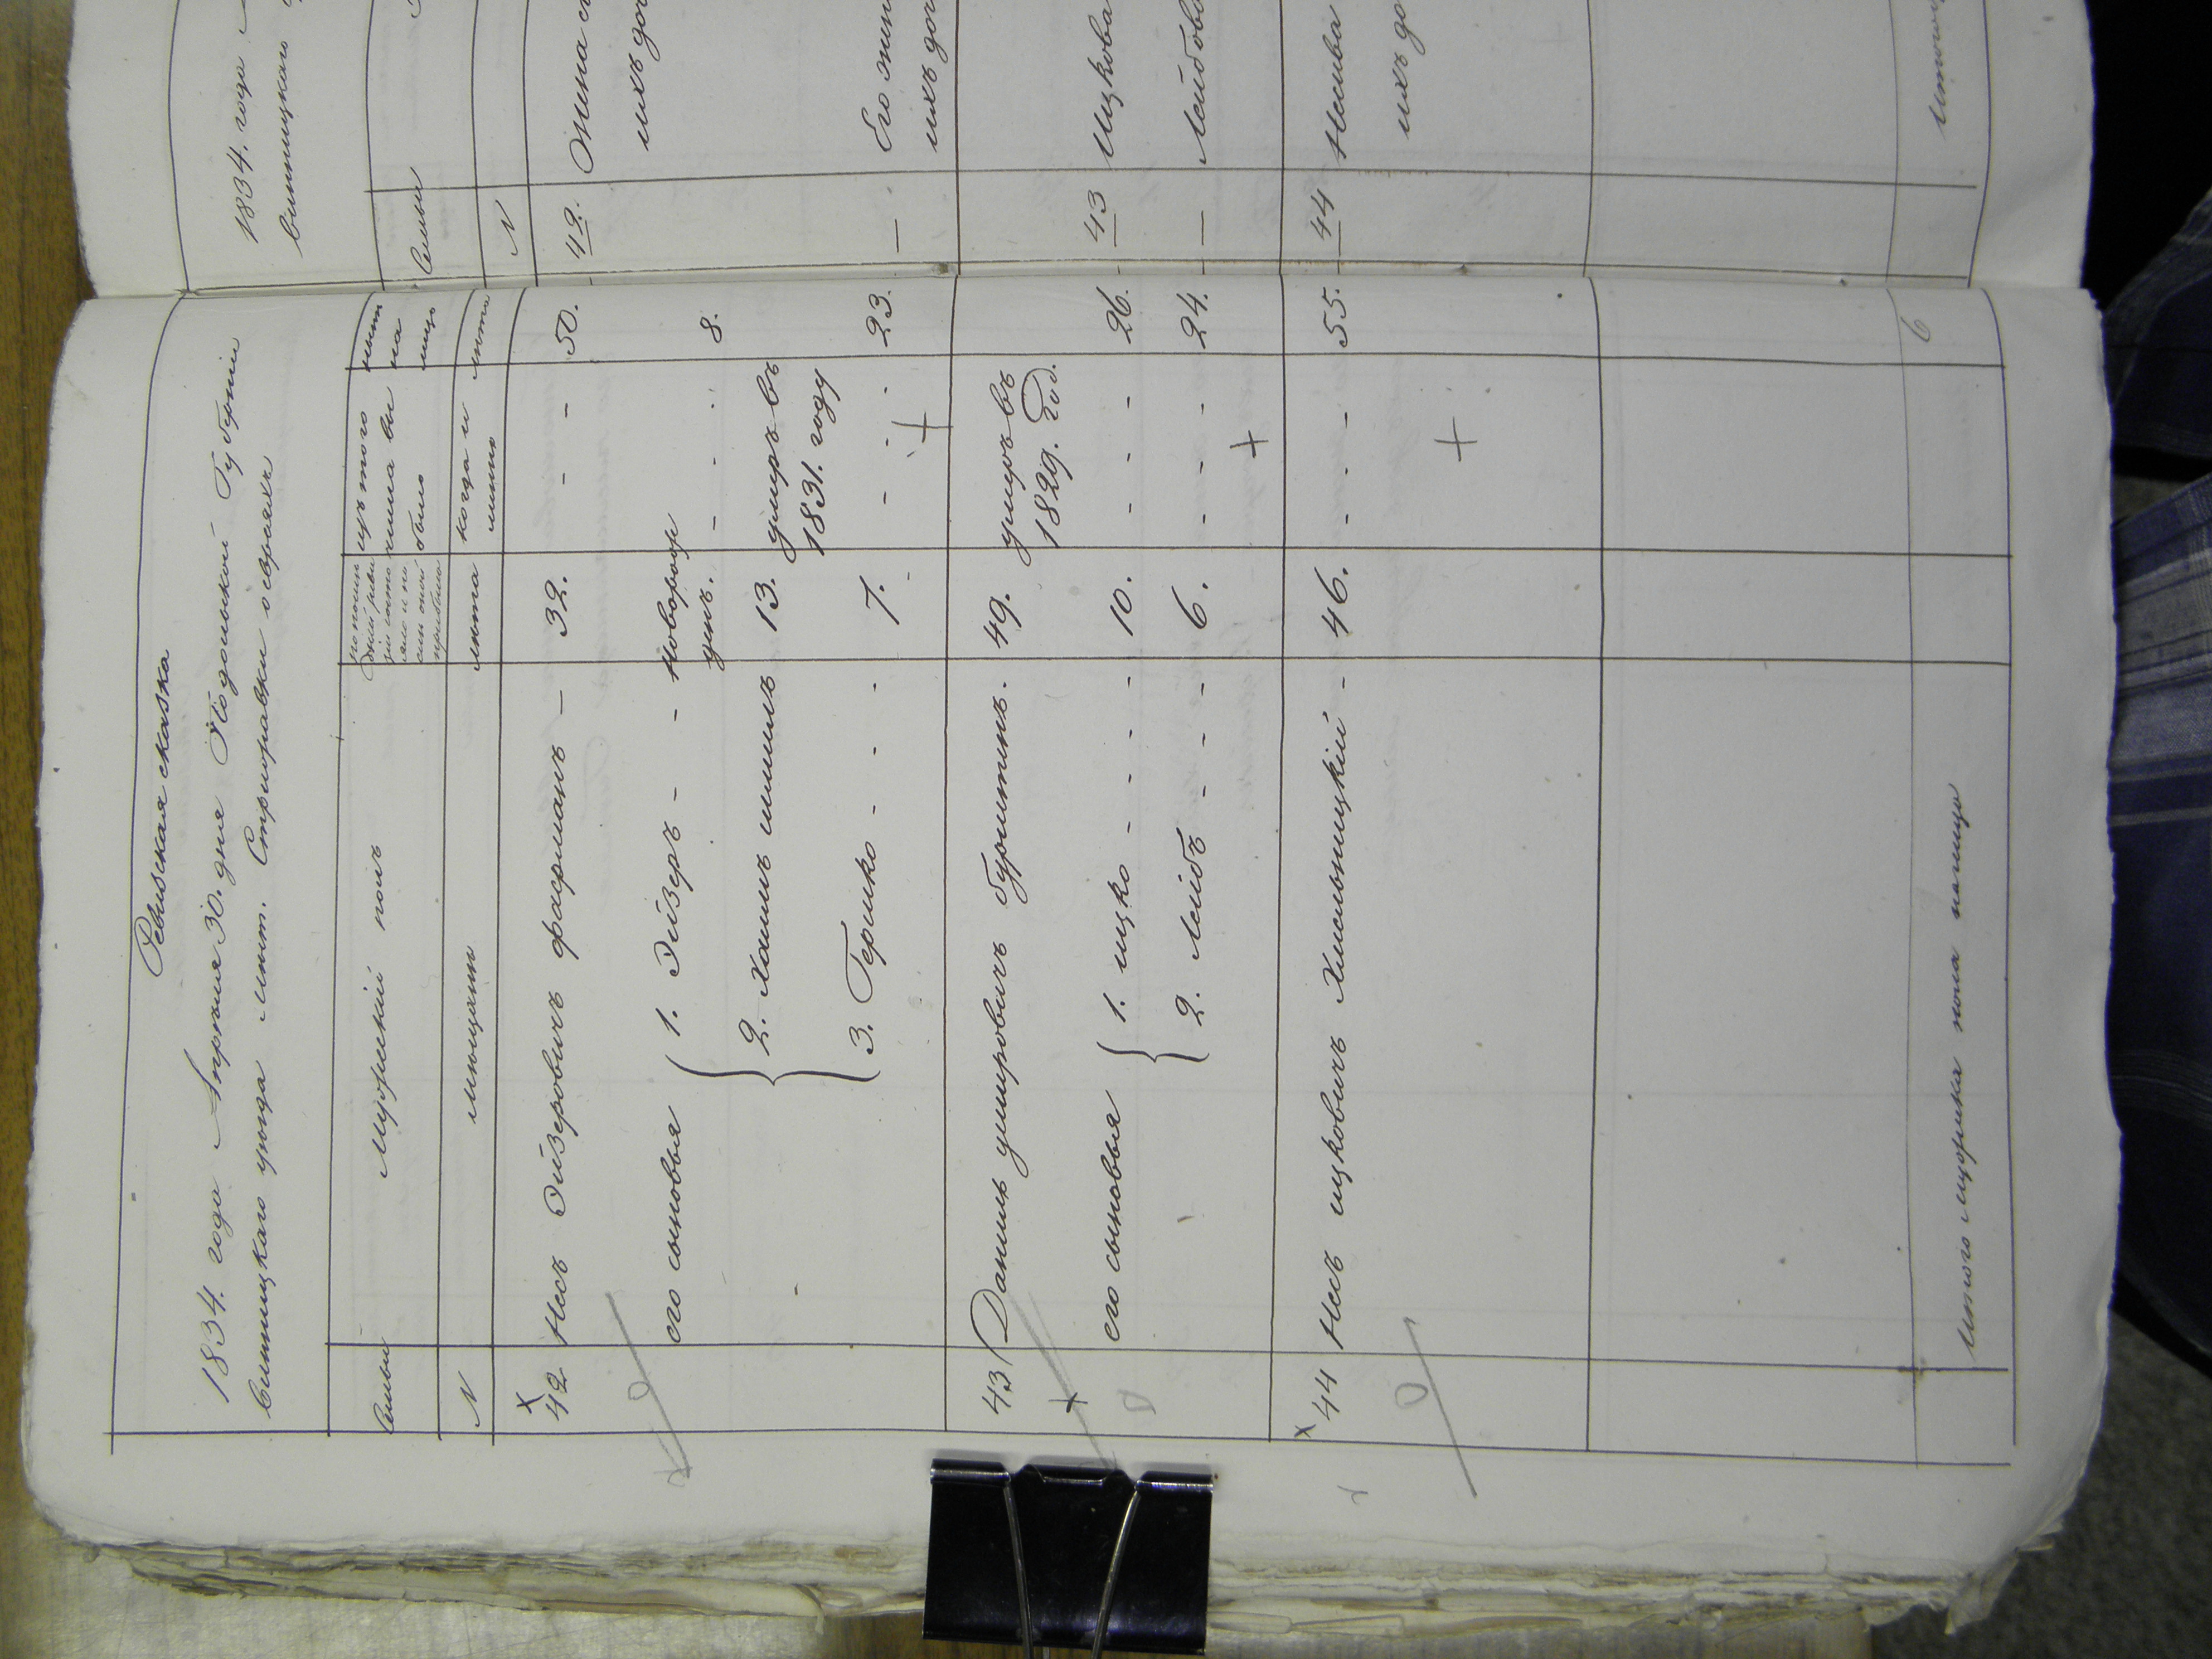 Ревизская сказка
1834. года Апреля 30. дня Подольской Губернiи
Винницкаго уезда мест. Стрижавки о евреяхъ
Семьи
Мужеский полъ
по последней ревизiи состояло и после оной прибыло
изъ того числа выбыло
ныне на лицо
N
мещане
лета
когда и именно
лета
42
Несъ Эйзеровичъ фаерманъ
32.
50.
его сыновья
1. Эйзеръ
новорожденъ.
8.
2. Хаимъ шмиль
13.
умеръ въ
1831. году
3. Гершко
7.
23.
43
Даниль умировичъ бурштинъ.
49.
умеръ въ
1829. год.
его сыновья
1. ицко
10.
26.
2. Лейбъ
6.
24.
44
Несъ ицковичъ Хмельницкiй
46.
55.
итого мужеска пола налицо
6
1834. года
Винницкаго
Семьи
N
42.
Жена
ихъ доч
Его жен
ихъ доч
43
Ицкова
Лейбова
44
Несева
ихъ до
итого